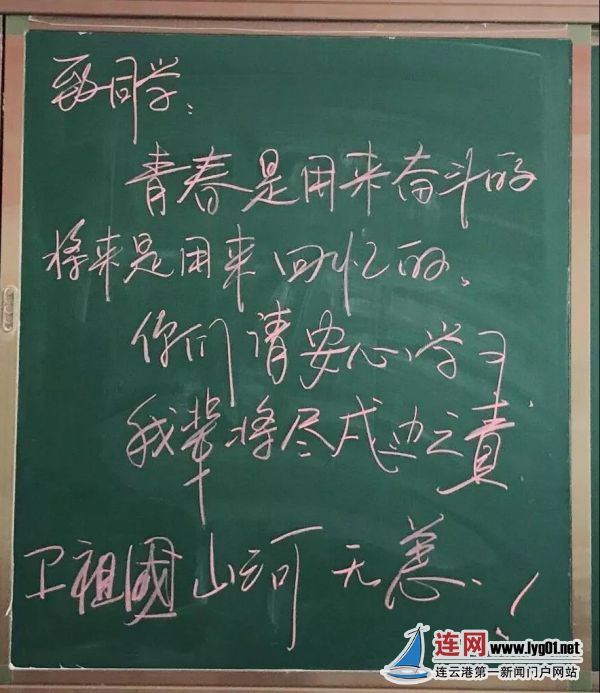 致同学:
青春是用来奋斗的
将来是用来回忆的、
你们请安心学习
我辈将尽戍边之责
卫祖國山河无恙、!
连网 www.lyg01.net
连云港第一新闻门户网站